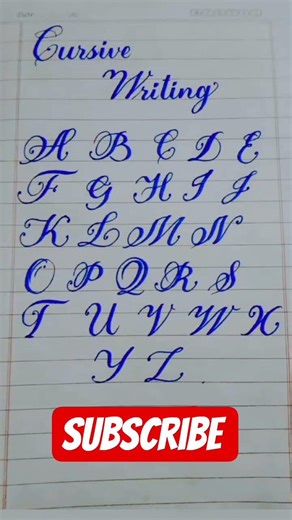 Cursive
Writing
A B C D E
F G H I J
K L M N
O P Q R S
T U V W X
Y Z
SUBSCRIBE